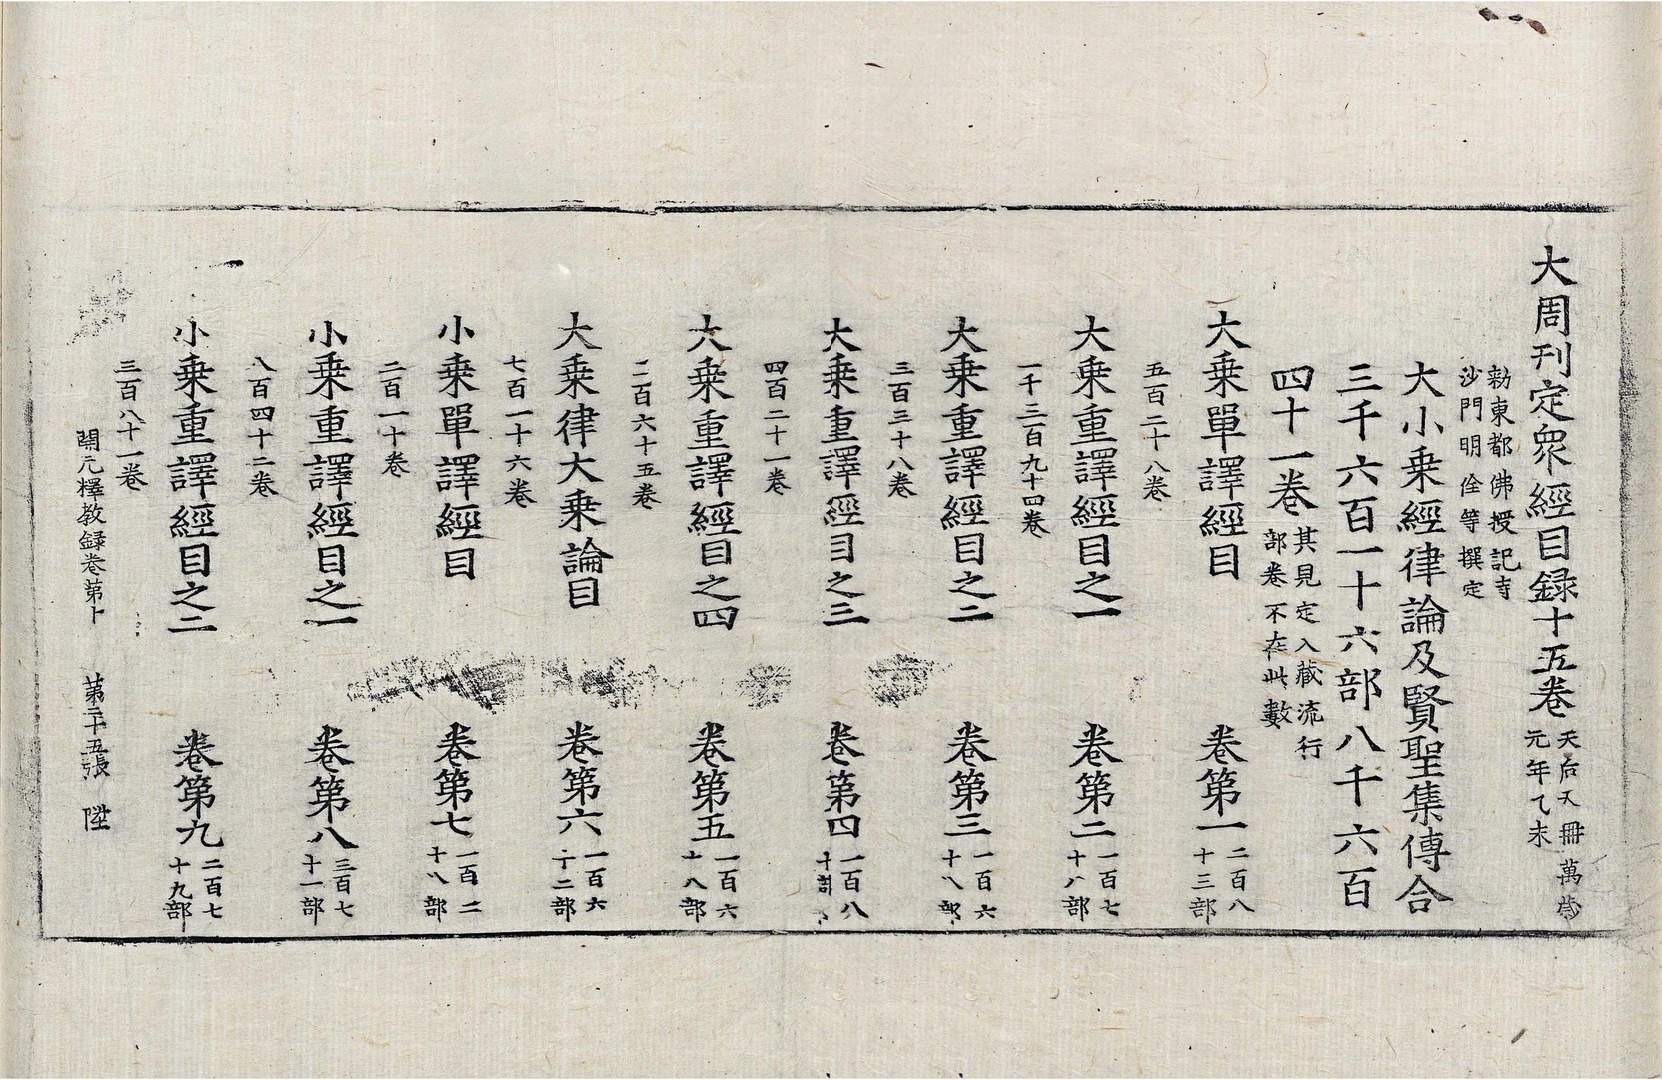 大周刊定衆經目録十五卷 天后天冊萬歲
元年乙未
勑東都佛授記寺
沙門明佺等撰定
大小乗經律論及賢聖集傳合
三千六百一十六部八千六百
四十一卷 其見定入藏流行
部卷不在此數
大乗單譯經目 卷第一 二百八
十三部
五百二十八卷
大乗重譯經目之一 卷第二 一百七
十八部
一千三百九十四卷
大乗重譯經目之二 卷第三 一百六
十八部
三百三十八卷
大乗重譯經目之三 卷第四 一百八
十
四百二十一卷
大乗重譯經目之四 卷第五 一百六
十八部
二百六十五卷
大乗律大乗論目 卷第六 一百六
十二部
七百一十六卷
小乗單譯經目 卷第七 一百二
十八部
二百一十卷
小乗重譯經目之一 卷第八 三百七
十一部
八百四十二卷
小乗重譯經目之二 卷第九 二百七
十九部
三百八十一卷
開元釋教録卷第十 第二十五張 陞